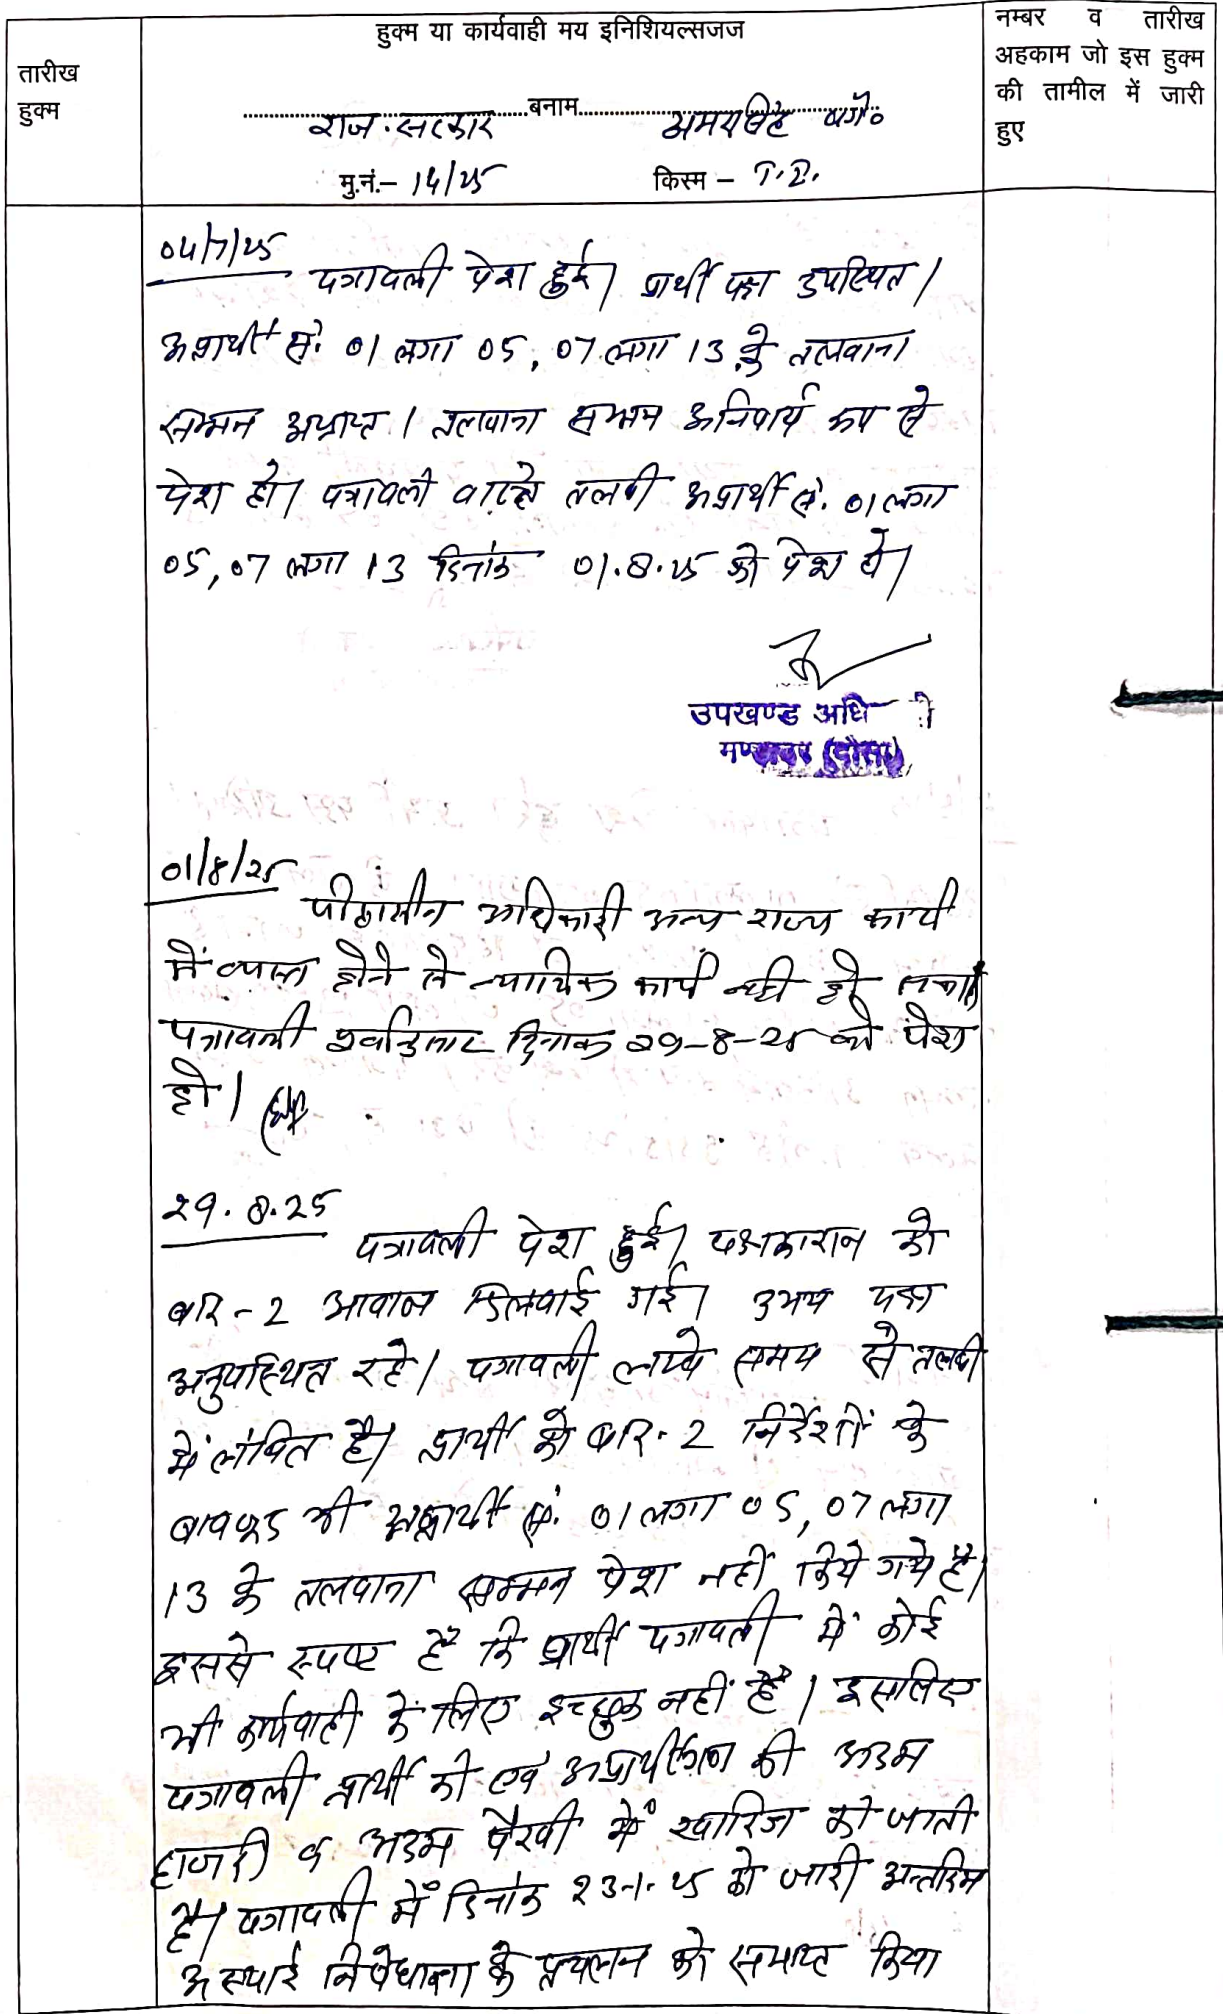 हुक्म या कार्यवाही मय इनिशियल्सजज
तारीख
हुक्म
नम्बर व तारीख
अहकाम जो इस हुक्म
की तामील में जारी
हुए
राज. सरकार बनाम अमरसिंह वगै०
मु.नं.- 14/25 किस्म - T.I.
04/7/25
पत्रावली पेश हुई। प्रार्थी पक्ष उपस्थित।
अप्रार्थी सं. 01 लगा 05, 07 लगा 13 के तलवाना
सम्मन अप्राप्त। तलवाना सम्मन अनिवार्य रूप से
पेश हो। पत्रावली वास्ते तलवी अप्रार्थी सं. 01 लगा
05, 07 लगा 13 दिनांक 01.8.25 को पेश हो।
उपखण्ड अधि
मण्डावर (दौसा)
01/8/25
पीठासीन अधिकारी अन्य राज्य कार्य
में व्यस्त होने से न्यायिक कार्य नही हो सका।
पत्रावली पूर्वानुसार दिनांक 29-8-25 को पेश
हो।
29.8.25
पत्रावली पेश हुई। पक्षकारान को
बार-2 आवाज दिलवाई गई। उभय पक्ष
अनुपस्थित रहे। पत्रावली लम्बे समय से तलवी
में लंबित है। प्रार्थी को बार-2 निर्देशों के
बावजूद भी अप्रार्थी सं. 01 लगा 05, 07 लगा
13 के तलवाना सम्मन पेश नहीं किये गये है।
इससे स्पष्ट है कि प्रार्थी पत्रावली में कोई
भी कार्यवाही के लिए इच्छुक नहीं है। इसलिए
पत्रावली प्रार्थी की एवं अप्रार्थीगण की अदम
हाजरी व अदम पैरवी में खारिज की जाती
है। पत्रावली में दिनांक 23-1-25 को जारी अन्तरिम
अस्थाई निषेधाज्ञा के प्रचलन को समाप्त किया